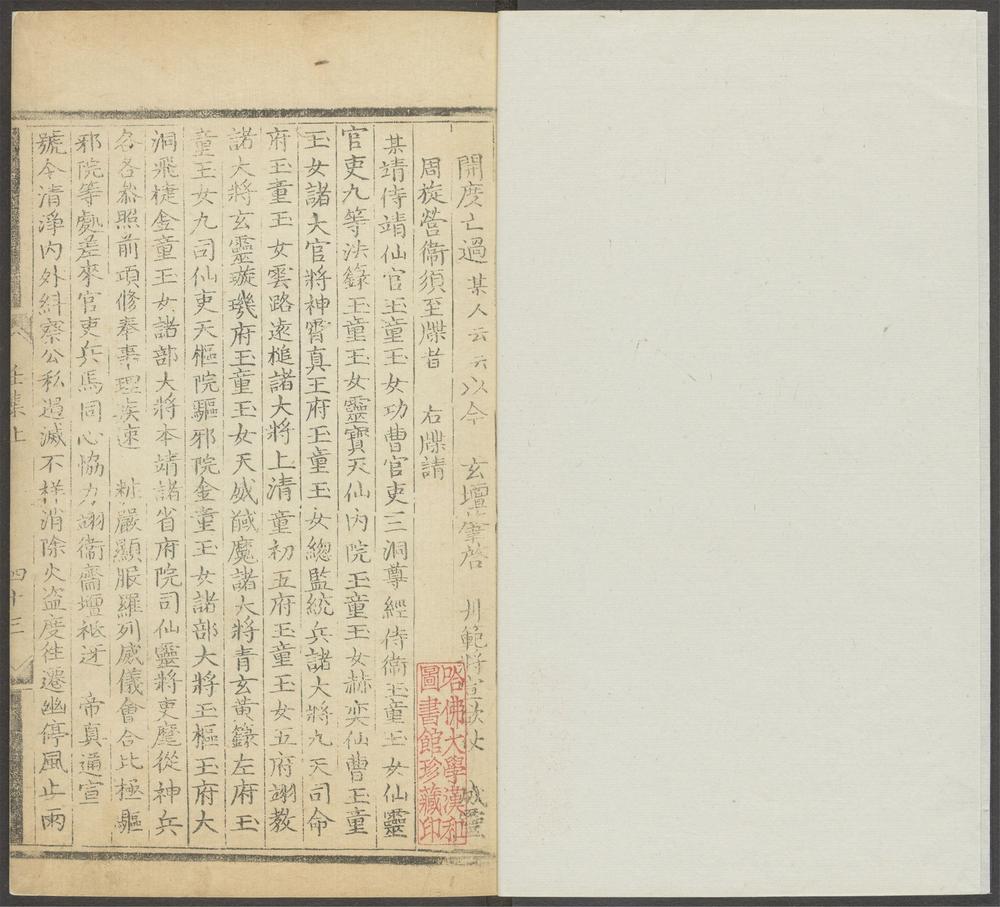 開度亡過某人云云以今　玄壇肇啓　科範將宣欲仗　威靈
周旋營衞須至牒者　右牒請
某靖侍靖仙官玉童玉女功曹官吏三洞尊經侍衞玉童玉女仙靈
官吏九等法籙玉童玉女靈寶天仙內院玉童玉女赫奕仙曹玉童
玉女諸大官將神霄真王府玉童玉女總監統兵諸大將九天司命
府玉童玉女雲路遠槌諸大將上清童初五府玉童玉女五府翊教
諸大將玄靈璇璣府玉童玉女天威馘魔諸大將青玄黃籙左府玉
童玉女九司仙吏天樞院驅邪院金童玉女諸部大將玉樞玉府大
洞飛捷金童玉女諸部大將本靖諸省府院司仙靈將吏麾從神兵
各各叅照前項修奉事理疾速　粧嚴顯服羅列威儀會合北極驅
邪院等處差來官吏兵馬同心恊力翊衞齋壇祗迓　帝真遍宣
號令清淨內外糾察公私遏滅不祥消除火盗度徃遷幽停風止雨
壬集上
四十三
哈佛大學漢和
圖書館珍藏印